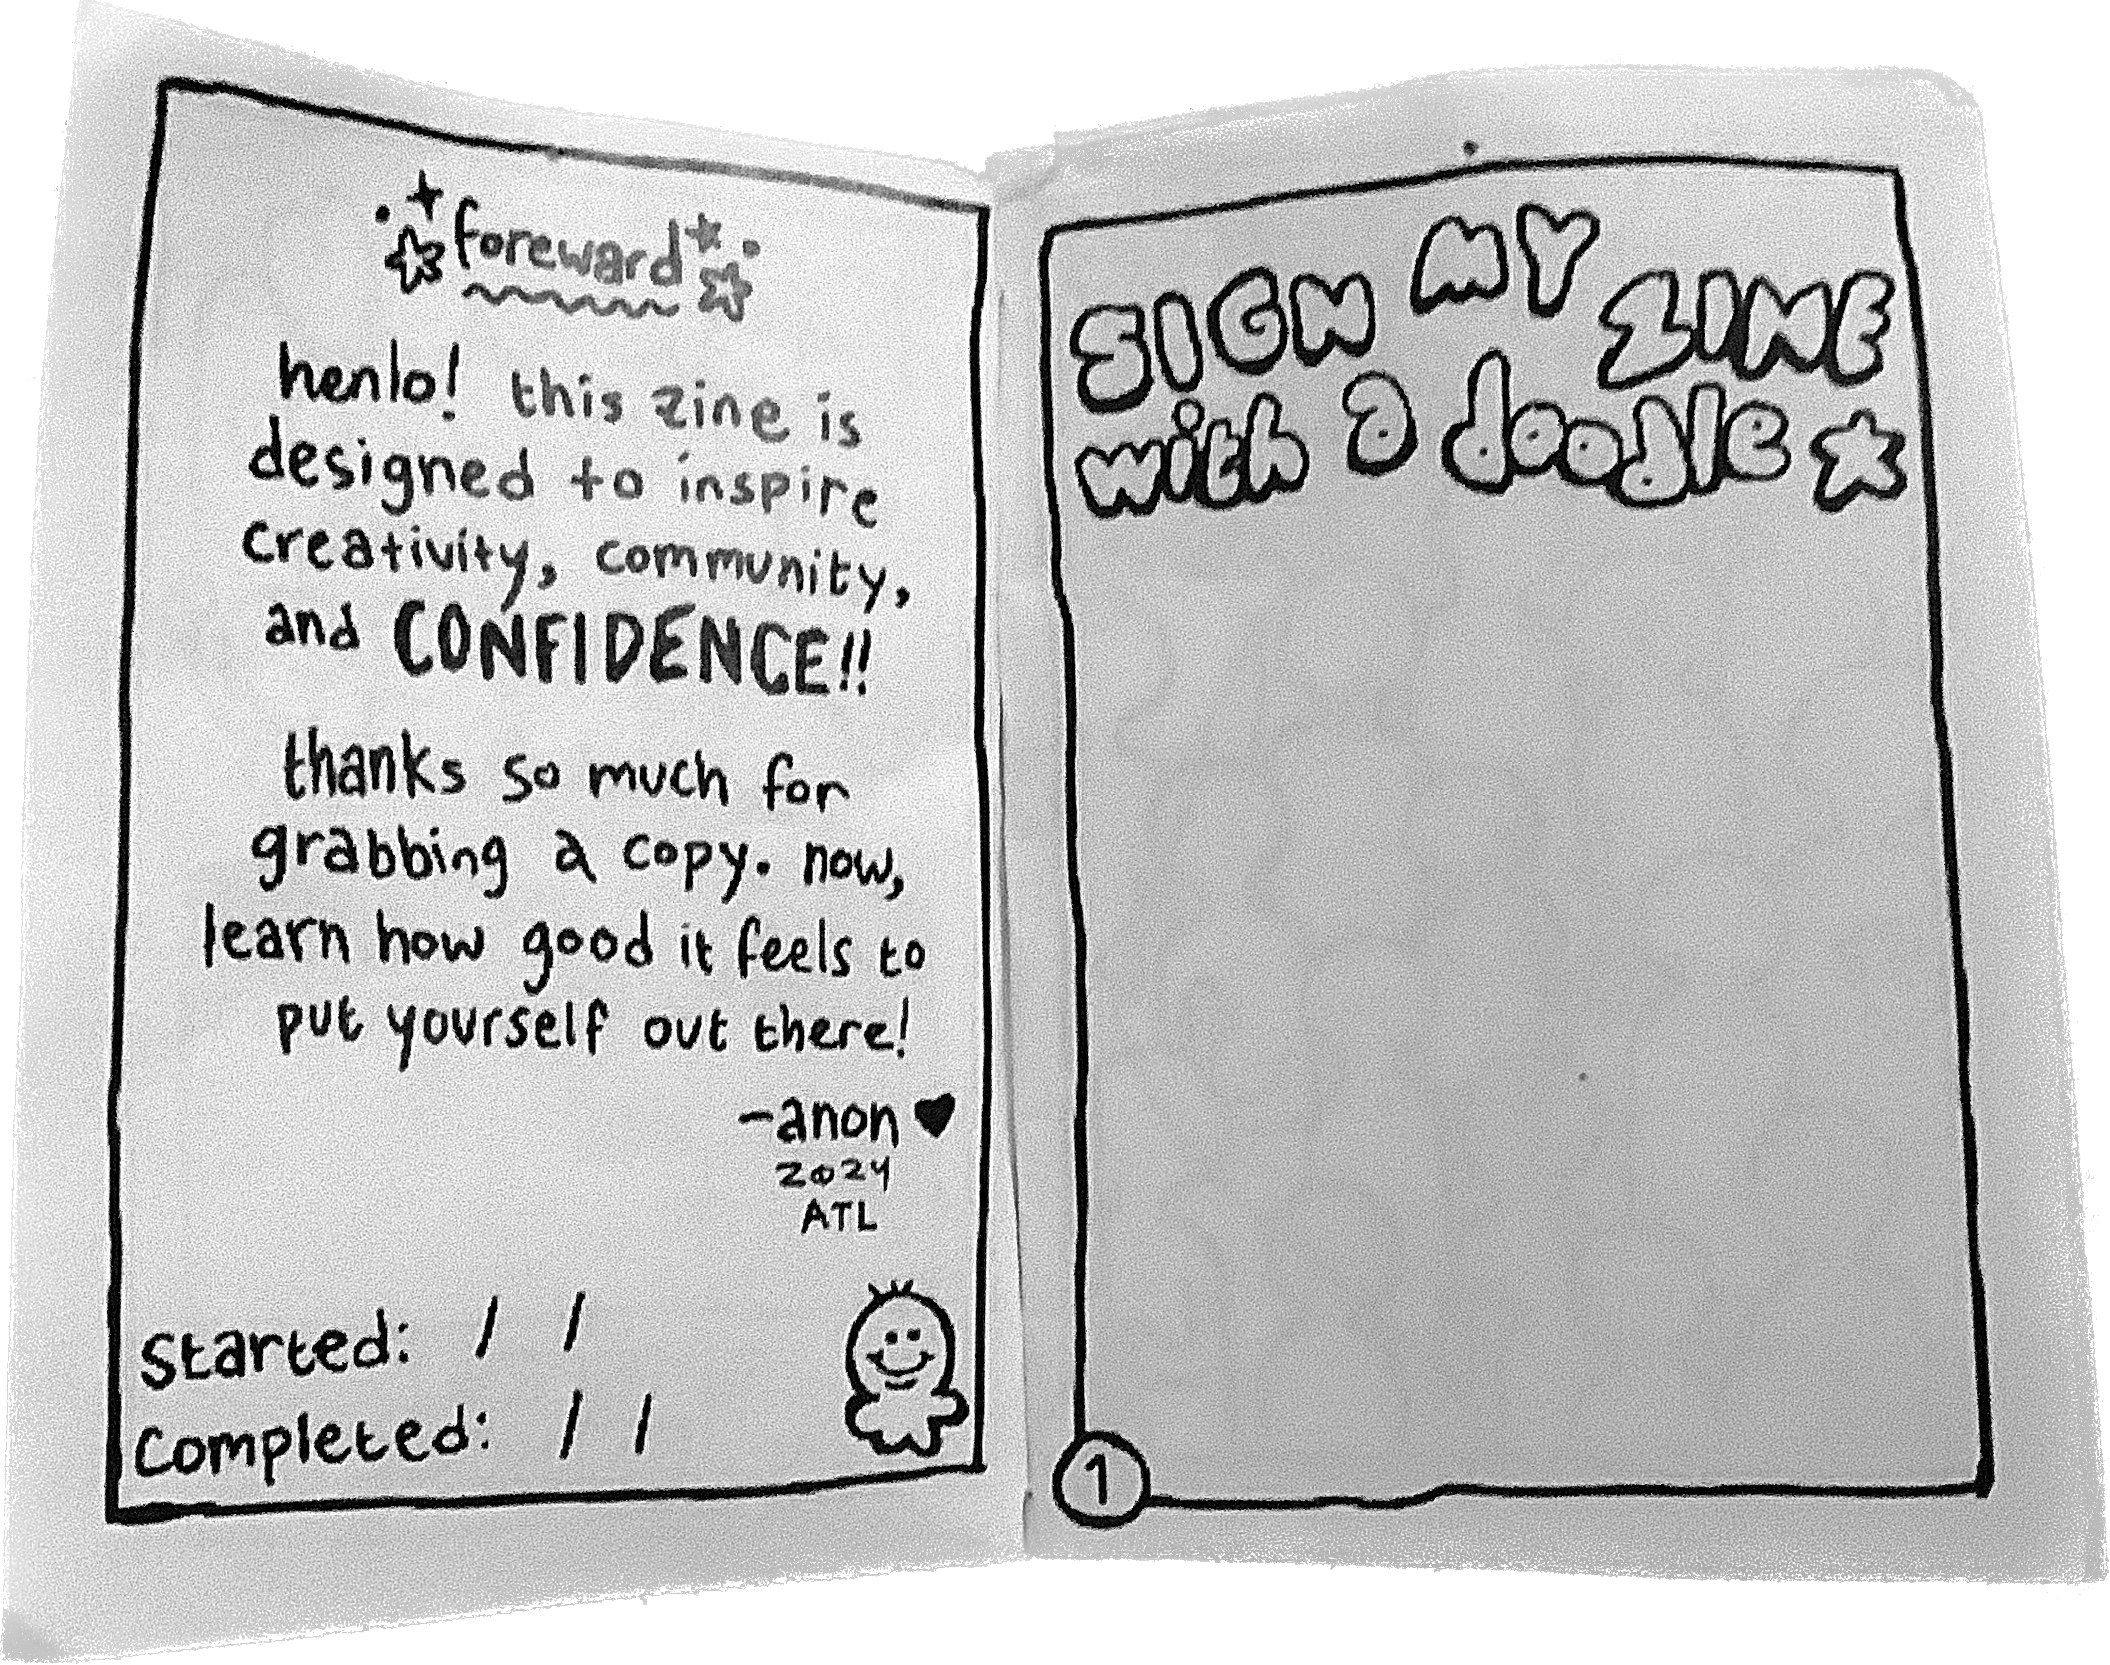 foreward
henlo! this zine is
designed to inspire
creativity, community,
and CONFIDENCE!!
thanks so much for
grabbing a copy. now,
learn how good it feels to
put yourself out there!
-anon ♥
2024
ATL
Started: / /
Completed: / /
SIGN MY ZINE
with a doodle ☆
1